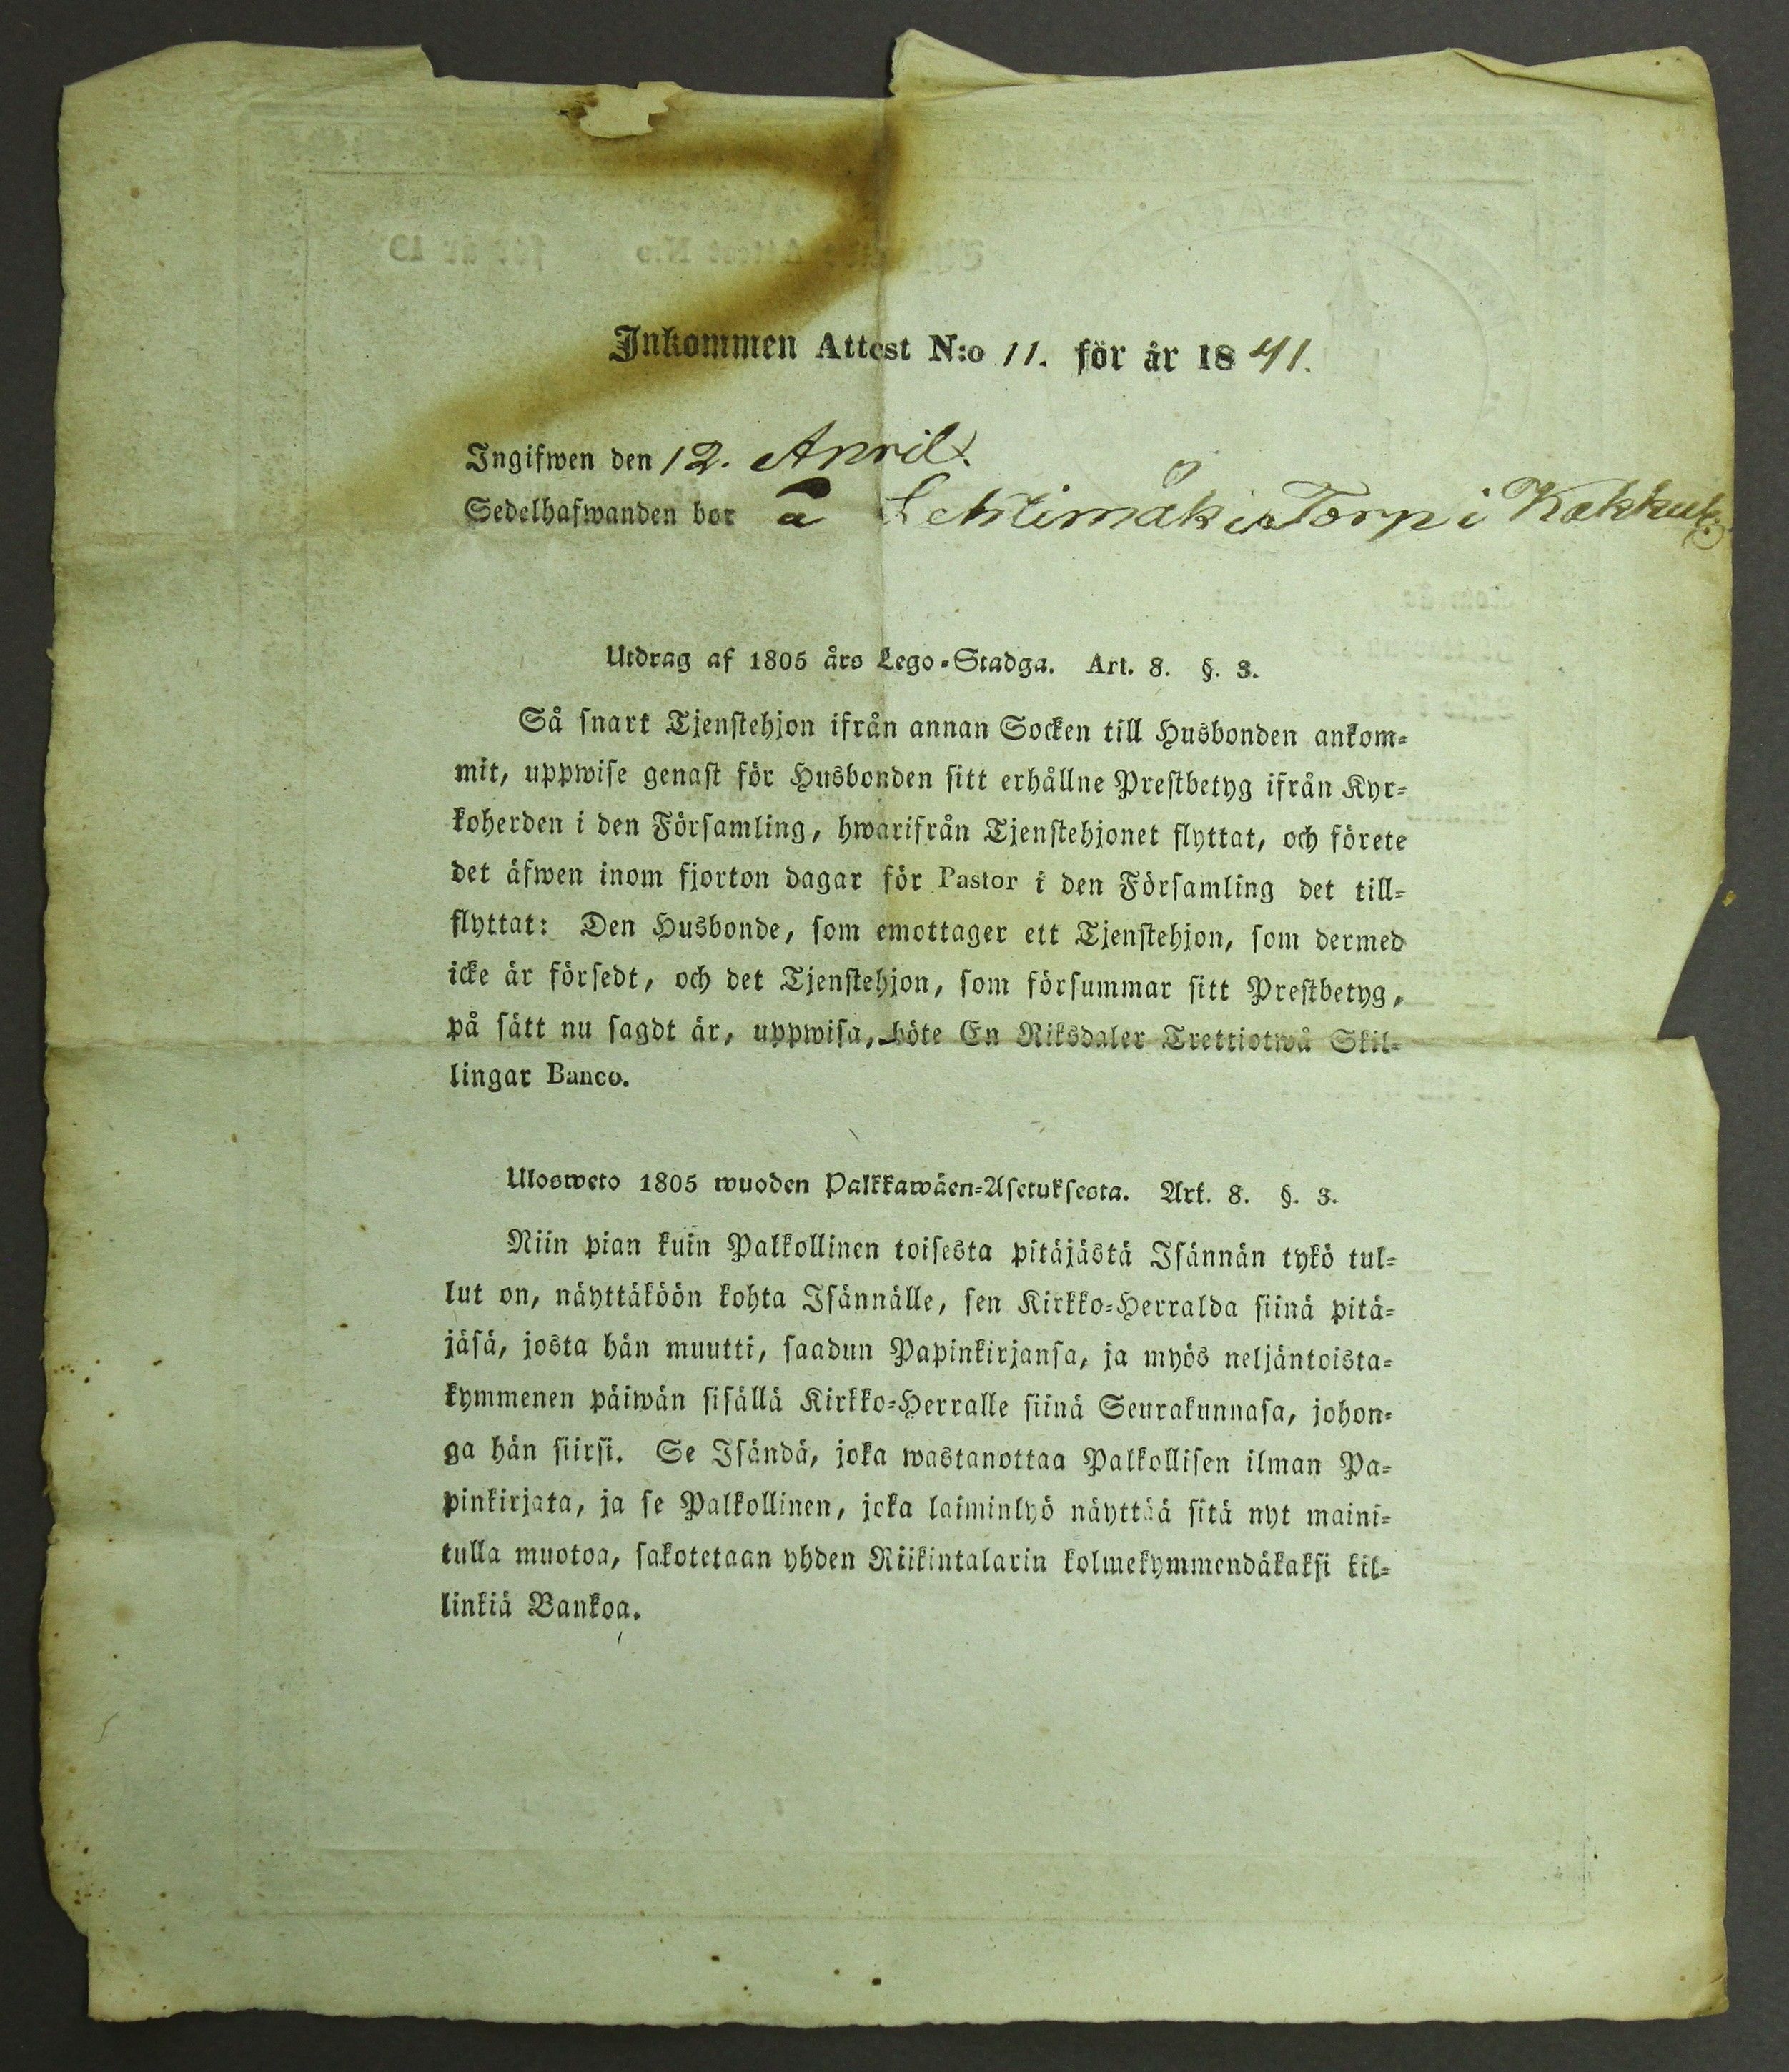 Inkommen Attest N:o 11. för år 1841.
Ingifwen den 12. April
Sedelhafwanden bor å Lehtimäki Torp i
Utdrag af 1805 års Lego-Stadga. Art. 8. §. 3.
Så snart Tjenstehjon ifrån annan Socken till Husbonden ankom-
mit, uppwise genast för Husbonden sitt erhållne Prestbetyg ifrån Kyr-
koherden i den Församling, hwarifrån Tjenstehjonet flyttat, och förete
det äfwen inom fjorton dagar för Pastor i den Församling det till-
flyttat: Den Husbonde, som emottager ett Tjenstehjon, som dermed
icke är försedt, och det Tjenstehjon, som försummar sitt Prestbetyg,
på sätt nu sagdt är, uppwisa, böte En Riksdaler Trettiotwå Skil-
lingar Banco.
Ulosweto 1805 wuoden Palkkawäen-Asetuksesta. Art. 8. §. 3.
Niin pian kuin Palkollinen toisesta pitäjästä Isännän tykö tul-
lut on, näyttäköön kohta Isännälle, sen Kirkko-Herralda siinä pitä-
jäsä, josta hän muutti, saadun Papinkirjansa, ja myös neljäntoista-
kymmenen päiwän sisällä Kirkko-Herralle siinä Seurakunnasa, johon-
ga hän siirsi. Se Isändä, joka wastanottaa Palkollisen ilman Pa-
pinkirjata, ja se Palkollinen, joka laiminlyö näyttää sitä nyt maini-
tulla muotoa, sakotetaan yhden Riikintalarin kolmekymmendäkaksi kil-
linkiä Bankoa.